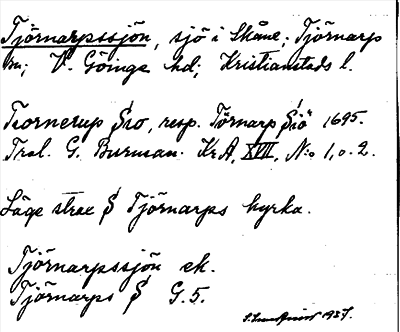 Tjörnarpssjön, sjö i Skåne; Tjörnarp
sn; V. Göinge hd; Kristianstads l.
Tiornerup Sio, resp. Törnarp Siö 1695.
Trol. G. Burman. KrA, XVII, N:o 1, o. 2.
Läge strax S Tjörnarps kyrka.
Tjörnarpssjön ek.
Tjörnarps S G.5.
1937.